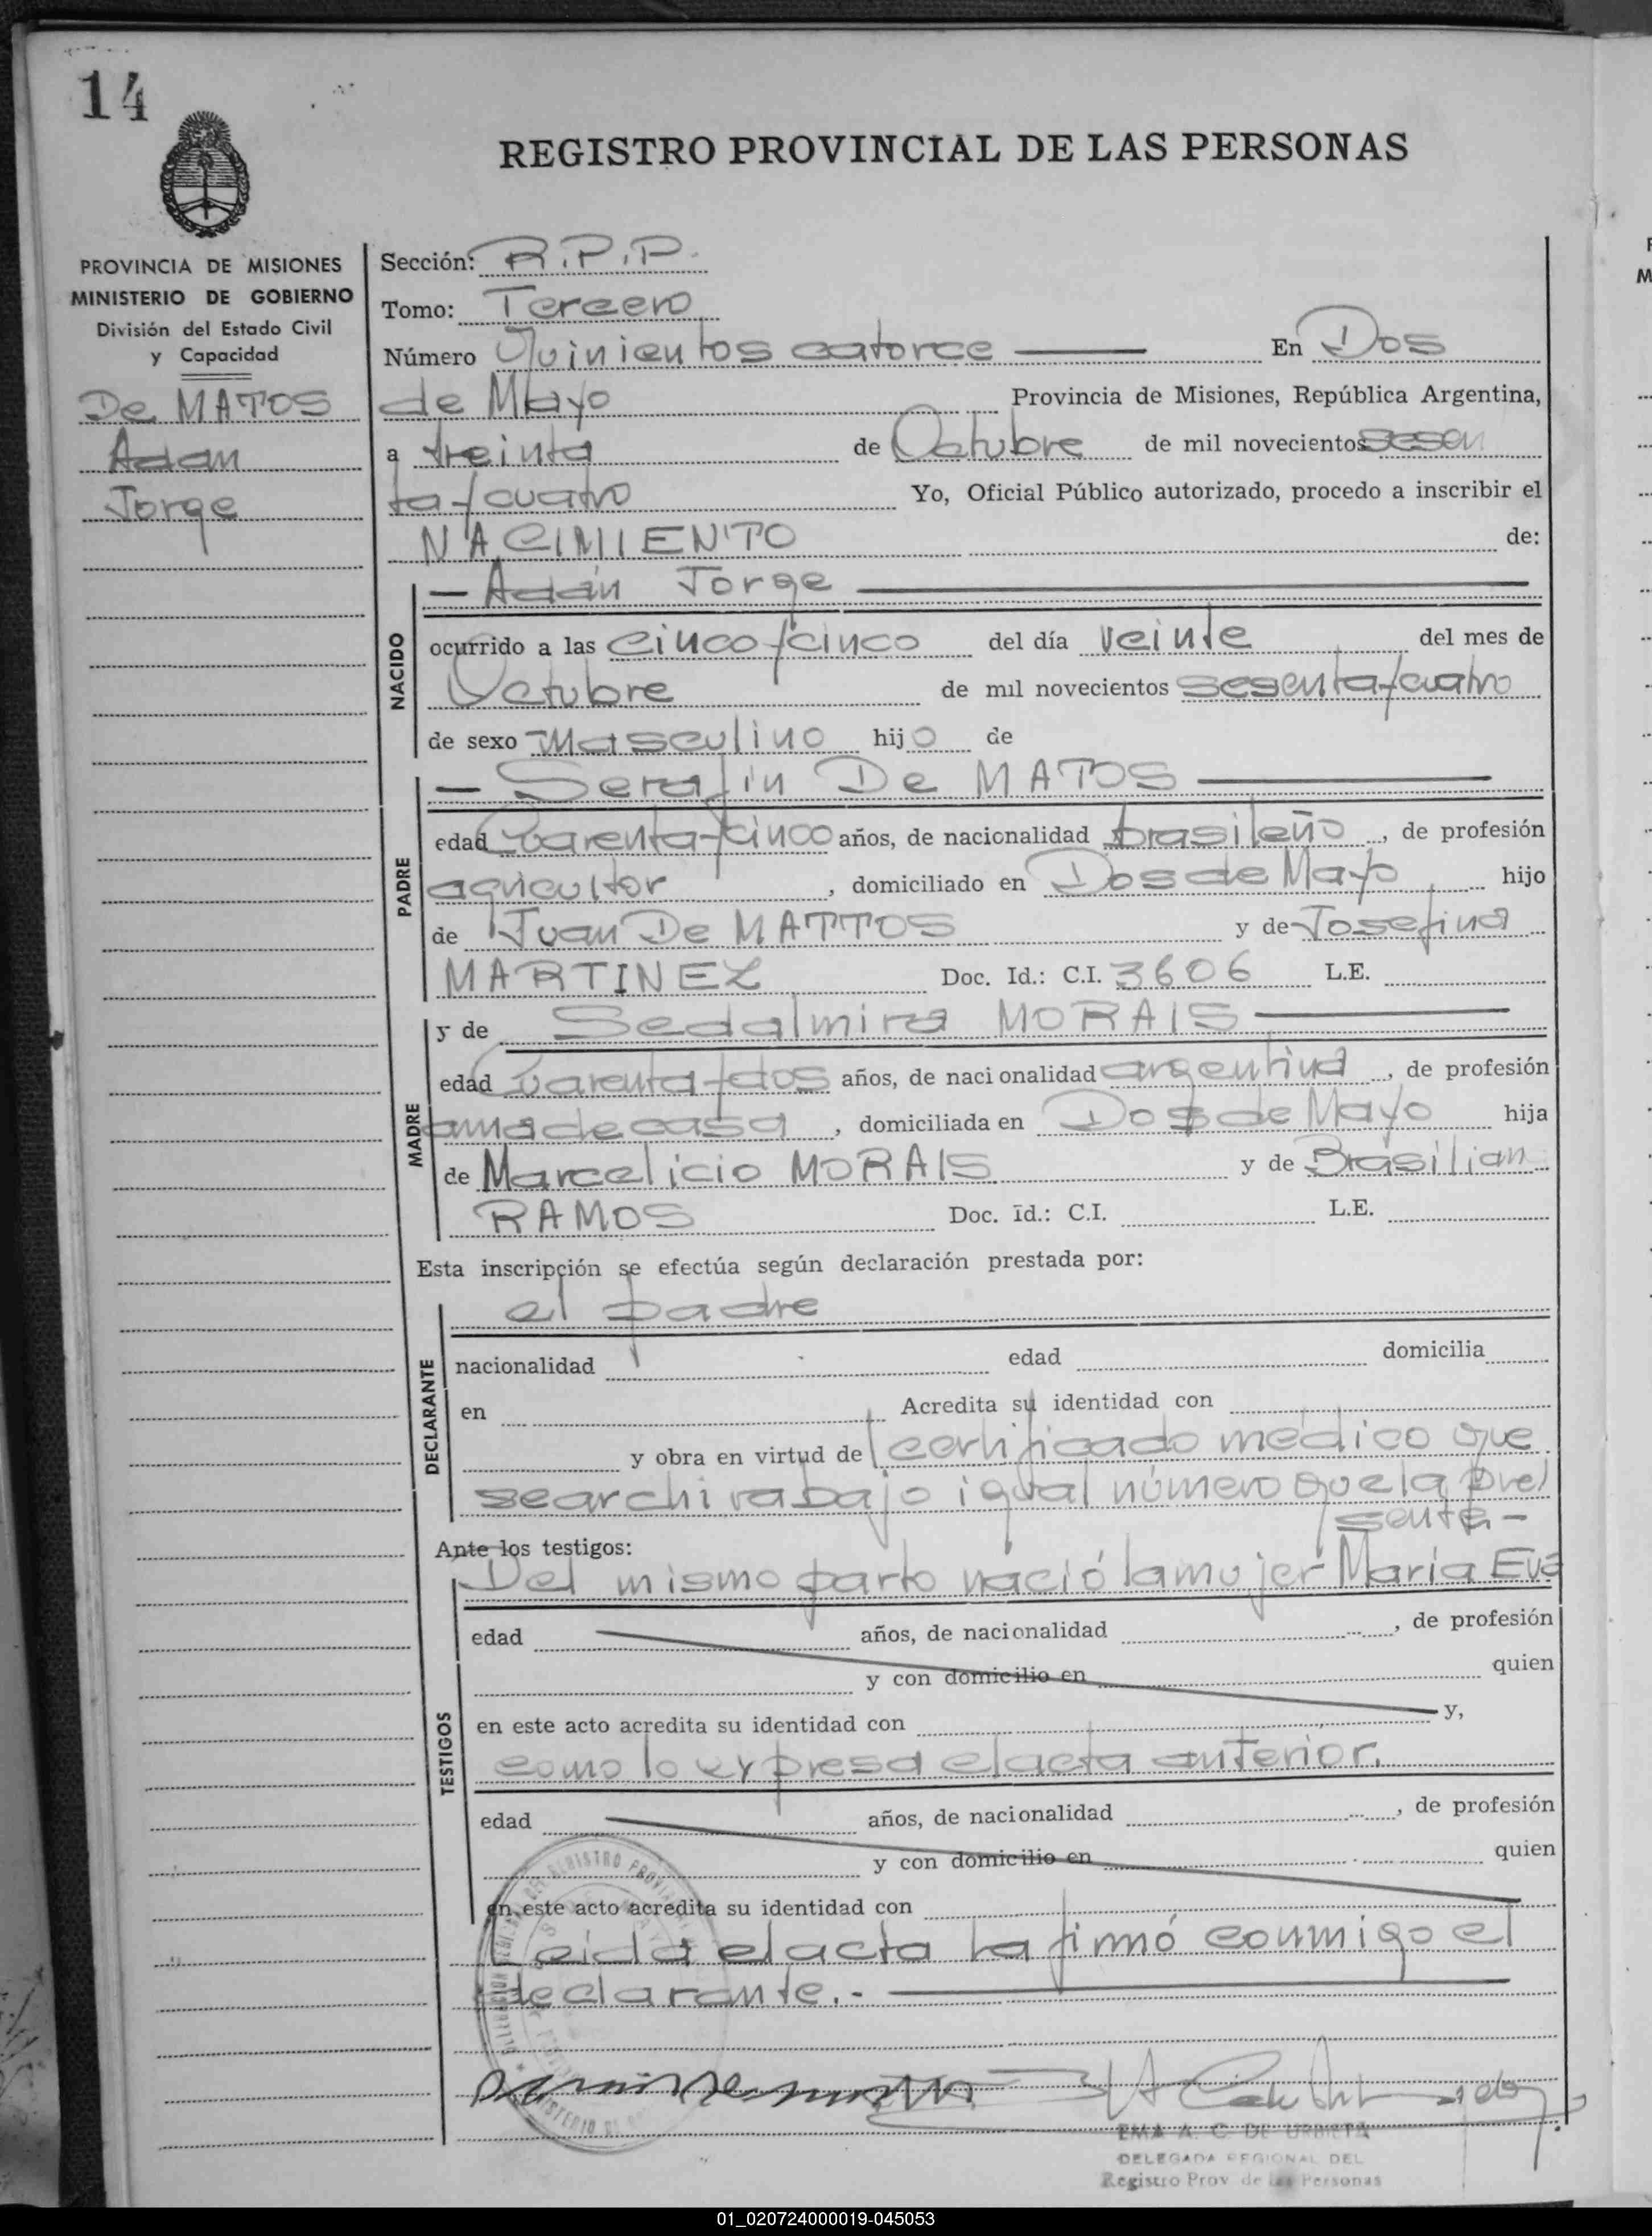 14
REGISTRO PROVINCIAL DE LAS PERSONAS
PROVINCIA DE MISIONES
MINISTERIO DE GOBIERNO
División del Estado Civil
y Capacidad
De MATOS
Adan
Jorge
Sección: R.P.P.
Tomo: Tercero
Número Quinientos catorce En Dos
de Mayo Provincia de Misiones, República Argentina,
a treinta de Octubre de mil novecientos sesen
ta y cuatro Yo, Oficial Público autorizado, procedo a inscribir el
NACIMIENTO de:
NACIDO
— Adán Jorge
ocurrido a las cinco y cinco del día veinte del mes de
Octubre de mil novecientos sesenta y cuatro
de sexo masculino hijo de
PADRE
— Serafin De MATOS
edad Cuarenta y cinco años, de nacionalidad brasileño, de profesión
agricultor, domiciliado en Dos de Mayo hijo
de Juan De MATTOS y de Josefina
MARTINEZ Doc. Id.: C.I. 3606 L.E.
MADRE
y de Sedalmira MORAIS
edad Cuarenta y dos años, de nacionalidad argentina, de profesión
ama de casa, domiciliada en Dos de Mayo hija
de Marcelicio MORAIS y de Brasilian
RAMOS Doc. Id.: C.I. L.E.
Esta inscripción se efectúa según declaración prestada por:
DECLARANTE
el padre
nacionalidad edad domicilia
en Acredita su identidad con
y obra en virtud de certificado médico que
se archiva bajo igual número que la pre/
sente.-
Ante los testigos:
TESTIGOS
Del mismo parto nació la mujer María Eva
edad años, de nacionalidad , de profesión
y con domicilio en quien
en este acto acredita su identidad con y,
como lo expresa el acta anterior.
edad años, de nacionalidad , de profesión
y con domicilio en quien
en este acto acredita su identidad con
Leida el acta la firmó conmigo el
declarante.-
EMA A. C. DE URBIETA
DELEGADA REGIONAL DEL
Registro Prov de las Personas
01_020724000019-045053